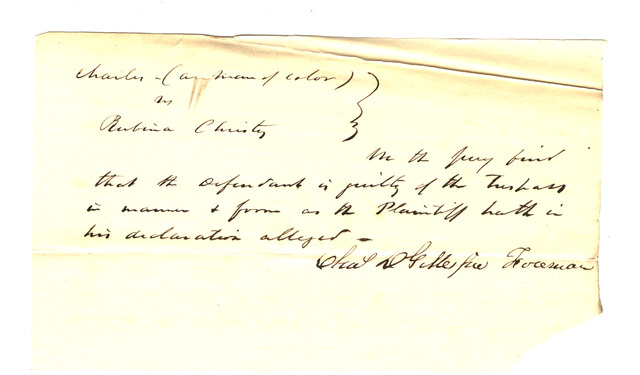 Charles - (a man of color)
vs
Rubina Christy
We the jury find
that the Defendant is guilty of the Trespass
in manner & form as the Plaintiff hath in
his declaration alleged -
Chas D Gillespie Foreman